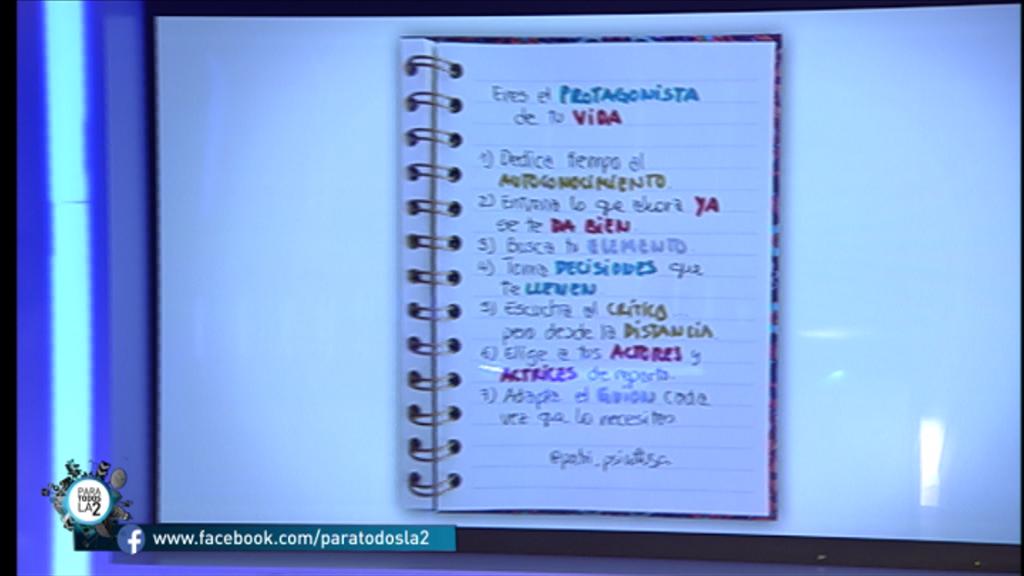 Eres el PROTAGONISTA
de tu VIDA
1) Dedica tiempo al
AUTOCONOCIMIENTO.
2) Entrena lo que ahora YA
se te DA BIEN
3) Busca tu ELEMENTO.
4) Toma DECISIONES que
te LLENEN
5) Escucha al CRÍTICO
pero desde la DISTANCIA.
6) Elige a tus ACTORES y
ACTRICES de reparto.
7) Adapta el GUION cada
vez que lo necesites.
PARA
TODOS
LA2
www.facebook.com/paratodosla2